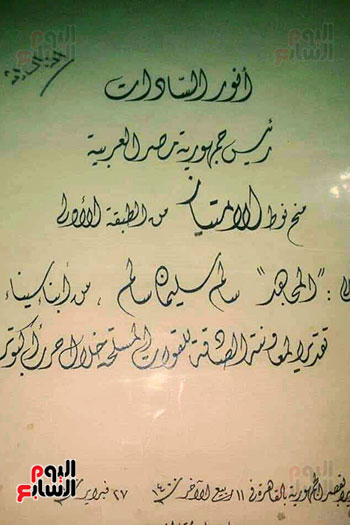 اليوم السابع
أنور السادات
رئيس جمهورية مصر العربية
منح نوط الامتياز من الطبقة الأولى
"المجاهد" سالم سليمان سالم ، من أبناء سيناء
تقديرا لمعاونته الصادقة للقوات المسلحة خلال حرب أكتوبر
بقصر الجمهورية بالقاهرة فى ١١ ربيع الآخر ٢٧ فبراير
اليوم السابع